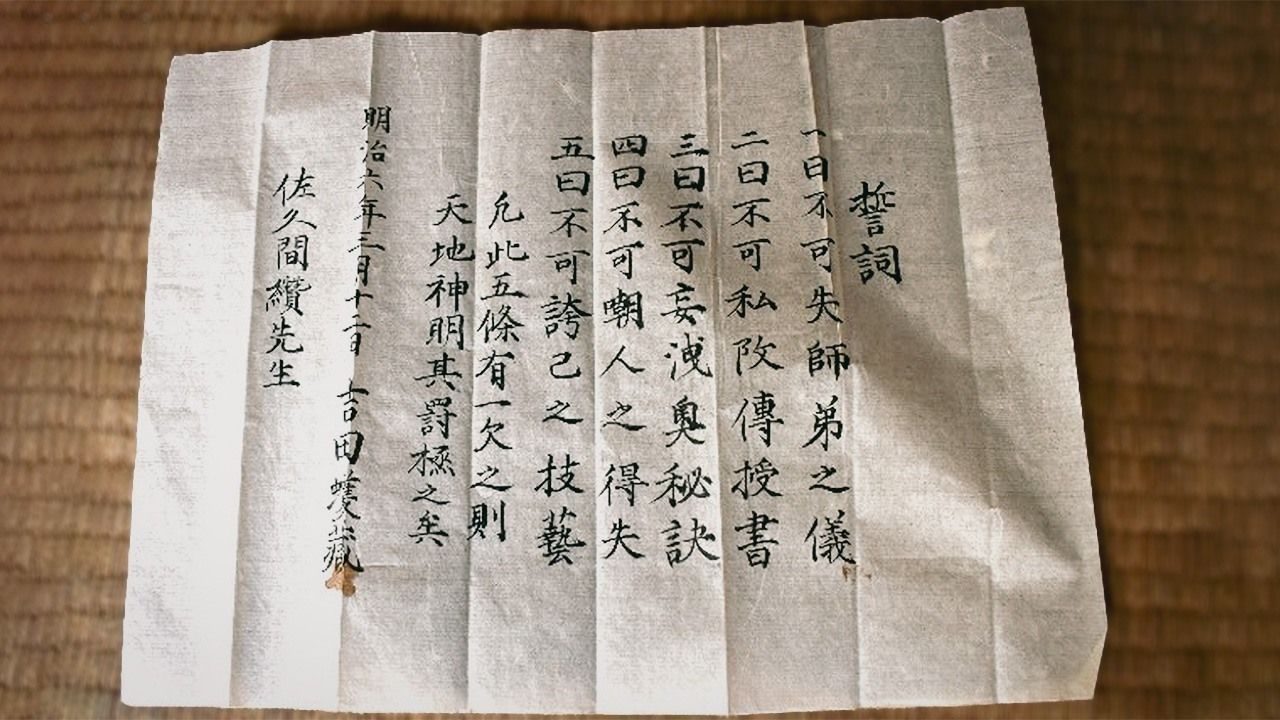 誓詞
一曰不可失師弟之儀
二曰不可私改傳授書
三曰不可妄洩奥秘訣
四曰不可嘲人之得失
五曰不可誇己之技藝
凡此五條有一欠之則
天地神明其罰極之矣
明治六年三月十二日 吉田藏
佐久間纘先生